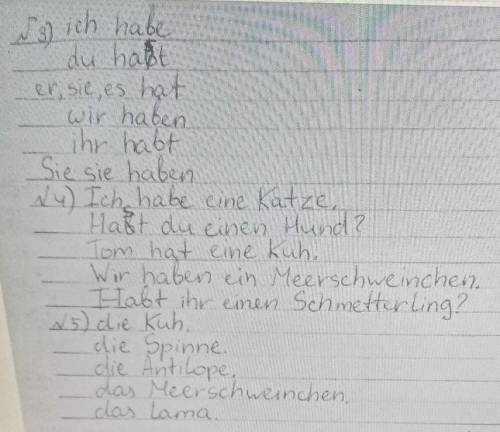 √3) ich habe
du hast
er, sie, es hat
wir haben
ihr habt
Sie sie haben
√4) Ich habe eine Katze.
Hast du einen Hund?
Tom hat eine Kuh.
Wir haben ein Meerschweinchen.
Habt ihr einen Schmetterling?
√5) die Kuh.
die Spinne.
die Antilope.
das Meerschweinchen.
das Lama.